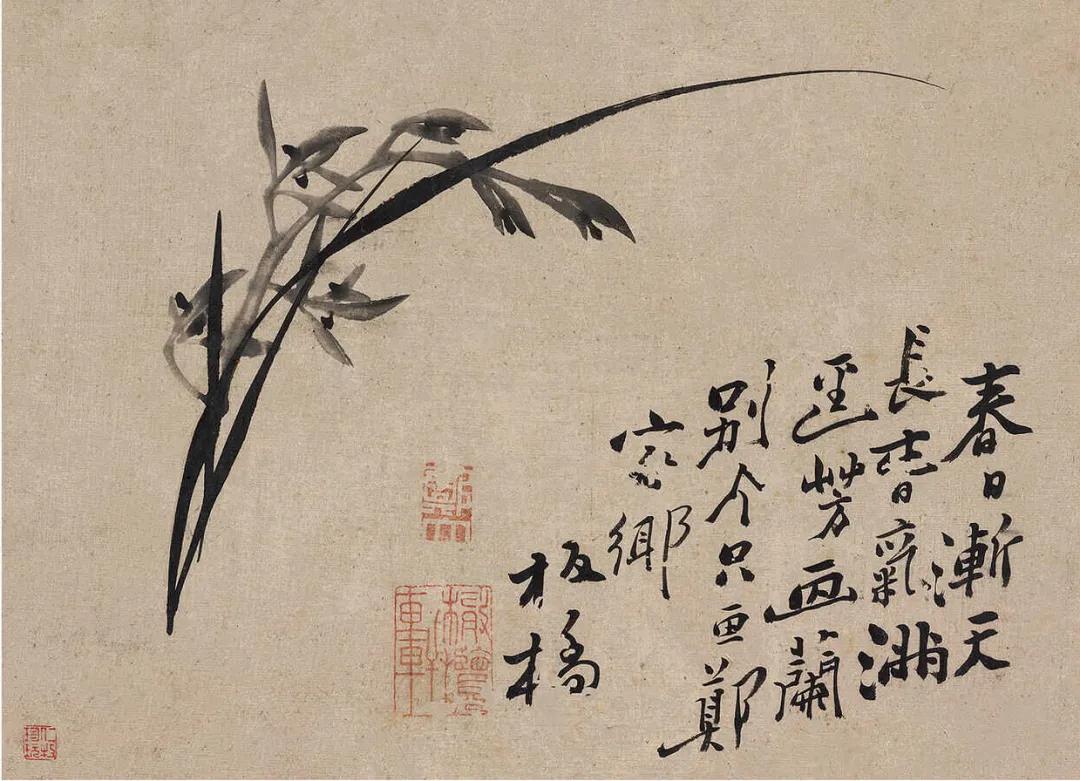 春日漸天
長氣滿
芳画蘭
别个只画鄭
家鄉
板橋